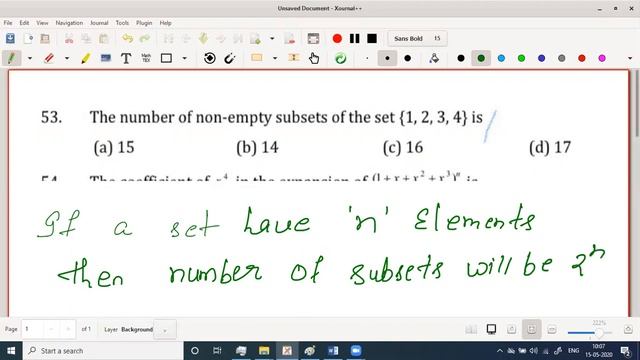 Unsaved Document - Xournal++
File Edit View Navigation Journal Tools Plugin Help
Sans Bold 15
53. The number of non-empty subsets of the set {1, 2, 3, 4} is
(a) 15 (b) 14 (c) 16 (d) 17
If a set have 'n' Elements
then number of subsets will be 2ⁿ
Page 1 of 1 Layer Background 222%
Start a search
ENG 10:07
15-05-2020